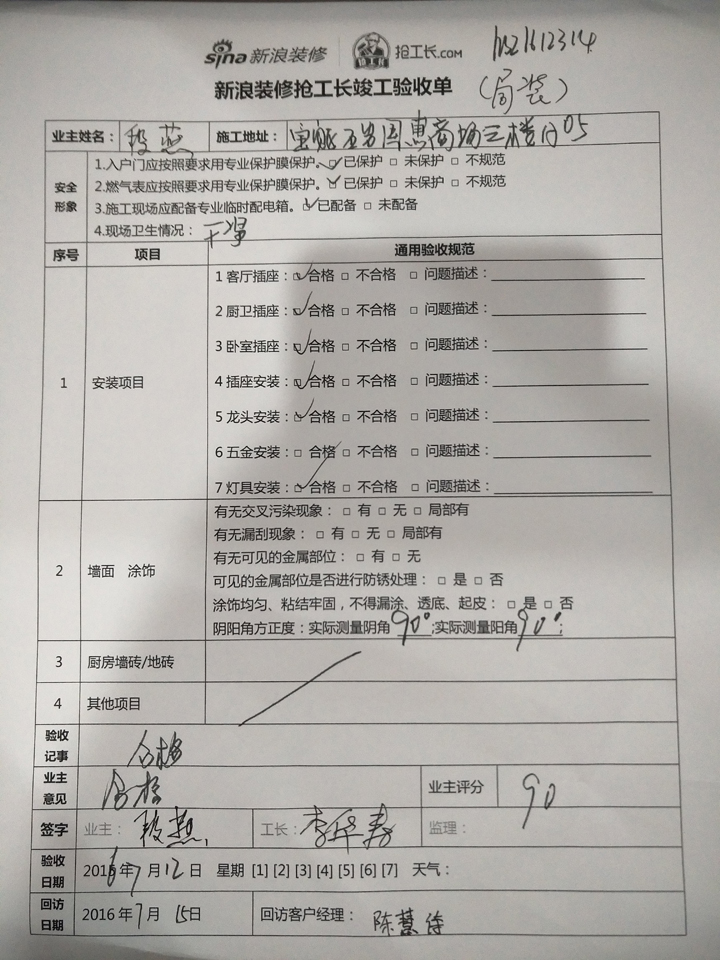 sina新浪装修 抢工长.COM
新浪装修抢工长竣工验收单 (局装)
业主姓名： 段燕 施工地址：
安全形象
1.入户门应按照要求用专业保护膜保护。☑已保护 □ 未保护 □ 不规范
2.燃气表应按照要求用专业保护膜保护。☑已保护 □ 未保护 □ 不规范
3.施工现场应配备专业临时配电箱。☑已配备 □ 未配备
4.现场卫生情况： 干净
序号 项目 通用验收规范
1 安装项目
1 客厅插座：☑合格 □ 不合格 □ 问题描述：
2 厨卫插座：☑合格 □ 不合格 □ 问题描述：
3 卧室插座：☑合格 □ 不合格 □ 问题描述：
4 插座安装：☑合格 □ 不合格 □ 问题描述：
5 龙头安装：☑合格 □ 不合格 □ 问题描述：
6 五金安装：□ 合格 □ 不合格 □ 问题描述：
7 灯具安装：☑合格 □ 不合格 □ 问题描述：
2 墙面 涂饰
有无交叉污染现象： □ 有 □ 无 □ 局部有
有无漏刮现象： □ 有 □ 无 □ 局部有
有无可见的金属部位： □ 有 □ 无
可见的金属部位是否进行防锈处理： □ 是 □ 否
涂饰均匀、粘结牢固，不得漏涂、透底、起皮： □ 是 □ 否
阴阳角方正度：实际测量阴角90°;实际测量阳角90°;
3 厨房墙砖/地砖
4 其他项目
验收记事 合格
业主意见 合格 业主评分 90
签字 业主： 段燕 工长： 李华寿 监理：
验收日期 2016年7月12日 星期 [1] [2] [3] [4] [5] [6] [7] 天气：
回访日期 2016年7月 15日 回访客户经理：